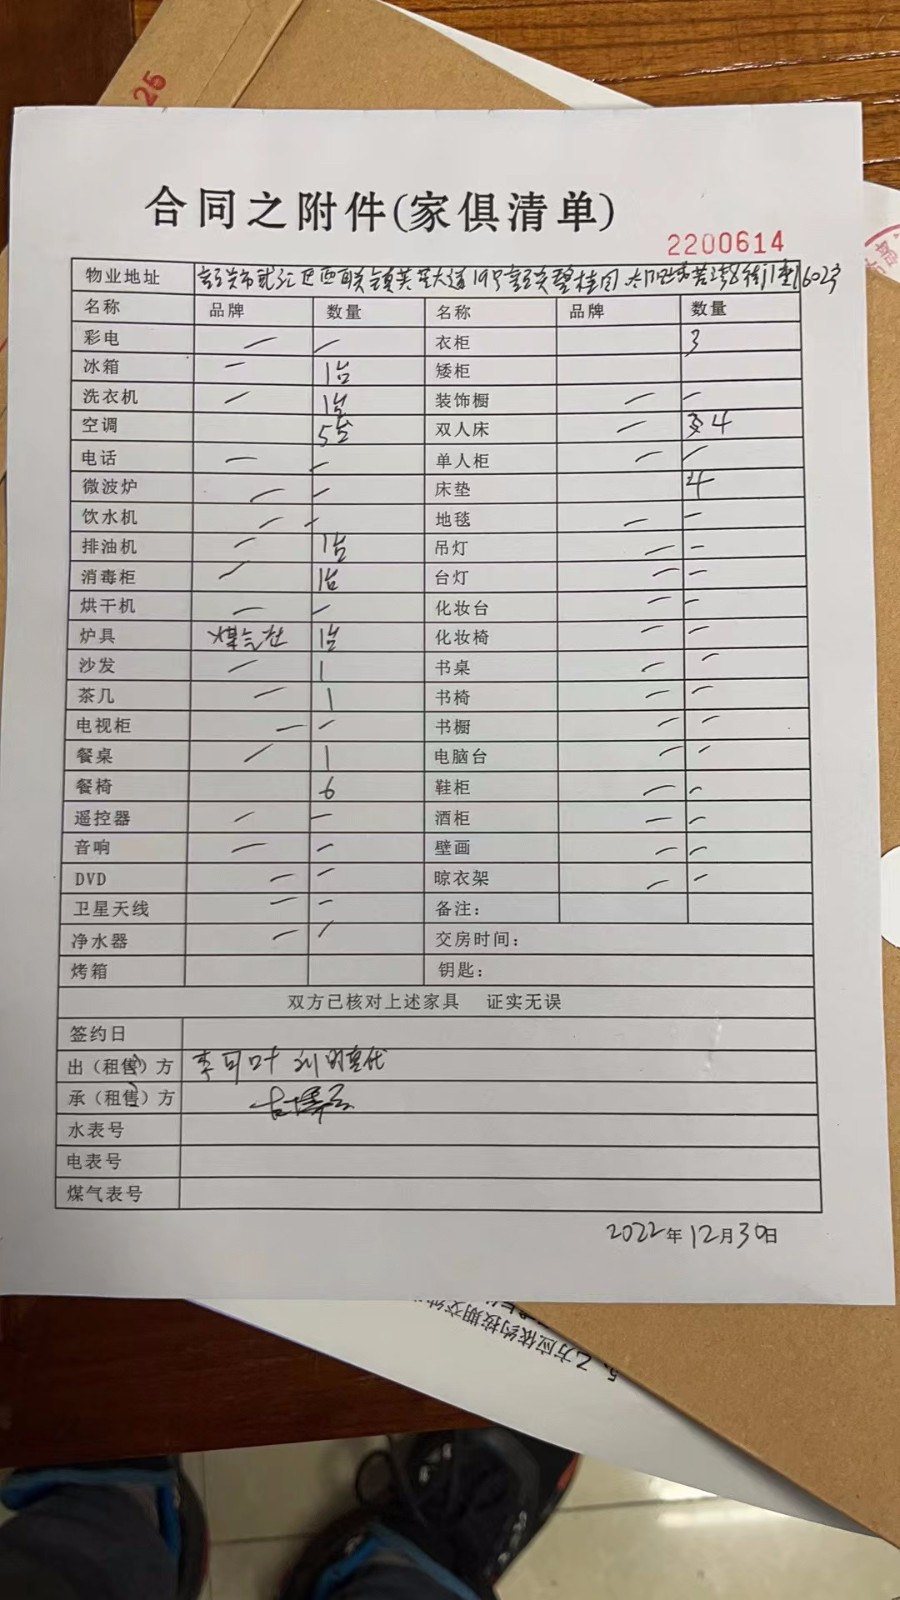 25
合同之附件(家俱清单)
2200614
物业地址 韶关市武江区西联镇芙蓉大道19号韶关碧桂园
名称 品牌 数量 名称 品牌 数量
彩电 — — 衣柜 3
冰箱 — 1台 矮柜
洗衣机 — 1台 装饰橱 — —
空调 5台 双人床 — 4
电话 — — 单人柜 — —
微波炉 — — 床垫 4
饮水机 — — 地毯 — —
排油机 — 1台 吊灯 — —
消毒柜 — 1台 台灯 — —
烘干机 — — 化妆台 — —
炉具 煤气灶 1台 化妆椅 — —
沙发 — 1 书桌 — —
茶几 — 1 书椅 — —
电视柜 — — 书橱 — —
餐桌 — 1 电脑台 — —
餐椅 6 鞋柜 — —
遥控器 — — 酒柜 — —
音响 — — 壁画 — —
DVD — — 晾衣架 — —
卫星天线 — — 备注:
净水器 — — 交房时间:
烤箱 钥匙:
双方已核对上述家具 证实无误
签约日
出(租售)方
承(租售)方
水表号
电表号
煤气表号
2022年12月30日
5、乙方应依约按期交纳